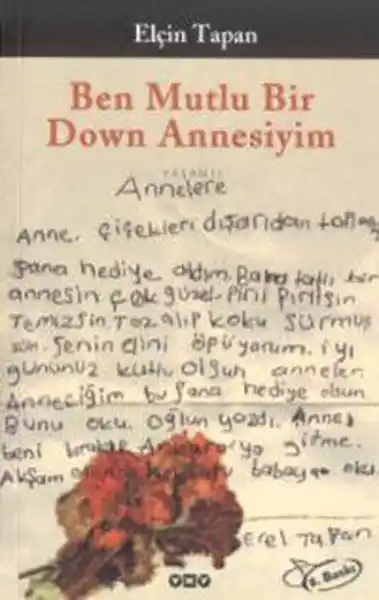 Elçin Tapan
Ben Mutlu Bir
Down Annesiyim
YAŞANTI
Annelere
Anne. çiçekleri dışarıdan
şana hediye aldım. Bana tatlı bir
annesin çok güzel. Pırıl Pırılsın
Temizsin. Toz alıp koku sürmüş
sün. Şenin elini öpüyorum. iyi
gününüz kutlu olsun anneler.
Anneciğim bu şana hediye olsun
Bunu oku. oğlun yazdı. Anne
beni bırakıp Ankara'ya gitme.
Akşam babaya oku
Erel Tapan
8. Baskı